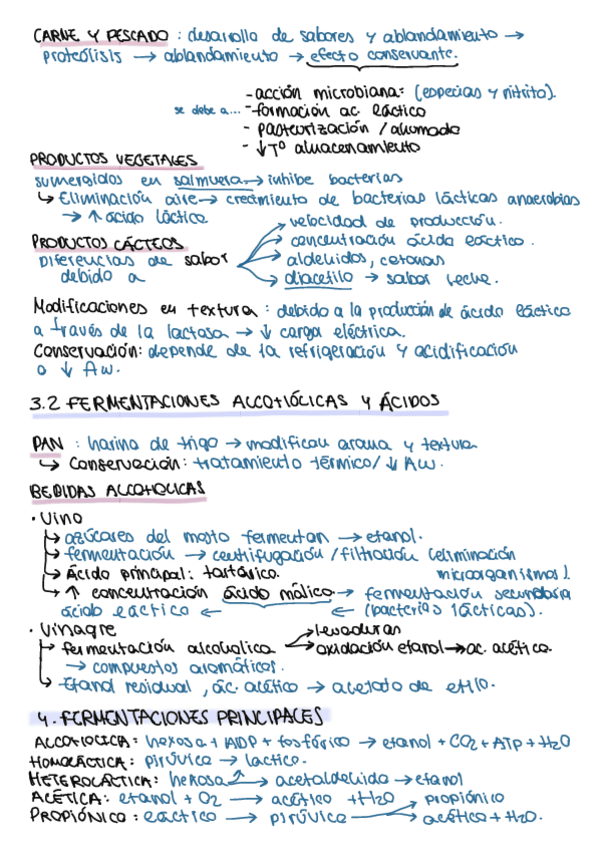 CARNE Y PESCADO : desarrollo de sabores y ablandamiento →
proteólisis → ablandamiento → efecto conservante.
- acción microbiana: (especias y nitrito).
se debe a... - formación ac. láctico
- pasteurización / ahumado
- ↓ Tº almacenamiento
PRODUCTOS VEGETALES
sumergidos en salmuera → inhibe bacterias
↳ Eliminación aire → crecimiento de bacterias lácticas anaerobias
→ ↑ ácido láctico
PRODUCTOS LÁCTEOS
Diferencias de sabor
debido a
velocidad de producción.
concentración ácido láctico.
aldehidos, cetonas
diacetilo → sabor leche.
Modificaciones en textura : debido a la producción de ácido láctico
a través de la lactosa → ↓ carga eléctrica.
Conservación: depende de la refrigeración y acidificación
o ↓ Aw.
3.2 FERMENTACIONES ALCOHÓLICAS Y ÁCIDOS
PAN : harina de trigo → modifican aroma y textura
↳ Conservación: tratamiento térmico/ ↓ Aw.
BEBIDAS ALCOHOLICAS
· Vino
↳ azúcares del mosto fermentan → etanol.
↳ fermentación → centrifugación / filtración (eliminación
microorganismos).
↳ Ácido principal: tartárico.
↳ ↑ concentración ácido málico → fermentación secundaria
ácido láctico ← ← (bacterias lácticas).
· Vinagre
↳ fermentación alcoholica
→ levaduras
→ oxidación etanol → ac. acético.
→ compuestos aromáticos.
↳ Etanol residual, ác. acético → acetato de etilo.
4. FERMENTACIONES PRINCIPALES
ALCOHOLICA: hexosa + ADP + fosfórico → etanol + CO2 + ATP + H2O
HOMOLÁCTICA: pirúvico → lactico.
HETEROLÁCTICA: hexosa ↗ → acetaldehido → etanol
ACÉTICA: etanol + O2 → acético + H2O
PROPIÓNICO: láctico → pirúvico
→ propiónico
→ acético + H2O.